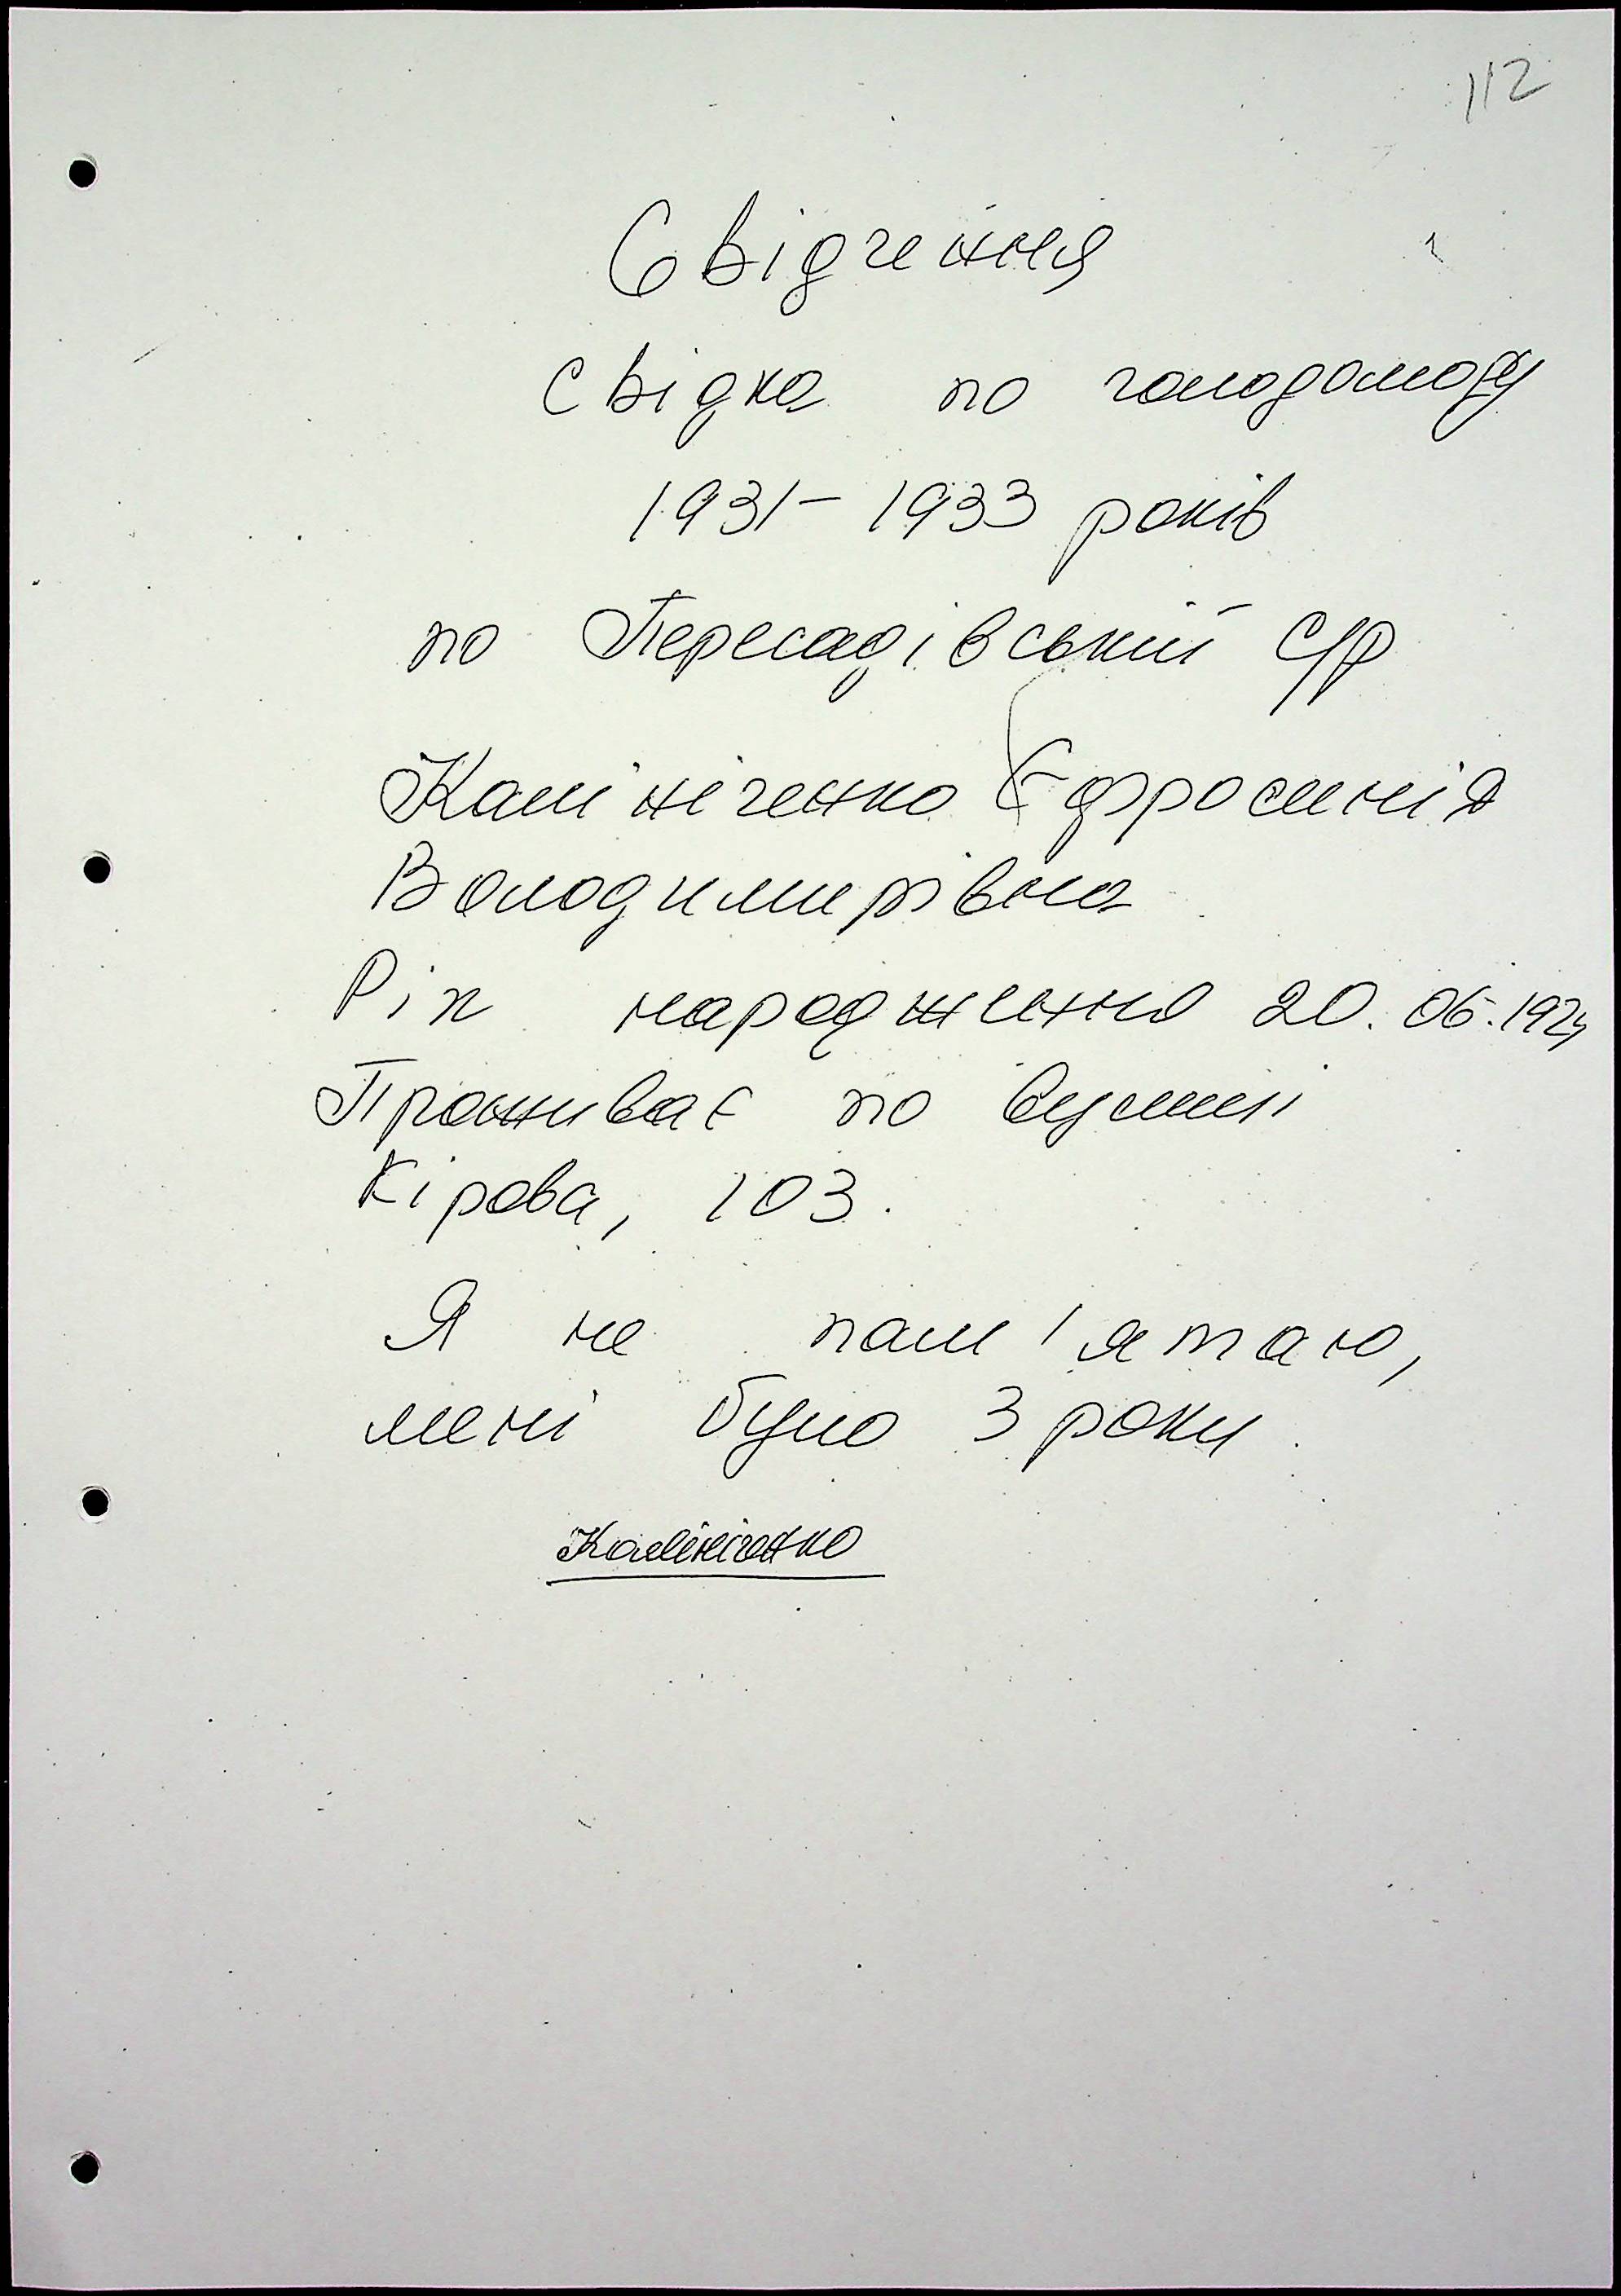 112
Свідчення
свідка по голодомору
1931-1933 років
по Пересадівській с/р
Калініченко Єфросинія
Володимирівна
Рік народження 20.06.1929
Проживає по вулиці
Кірова, 103.
Я не пам'ятаю,
мені було 3 роки.
Калініченко